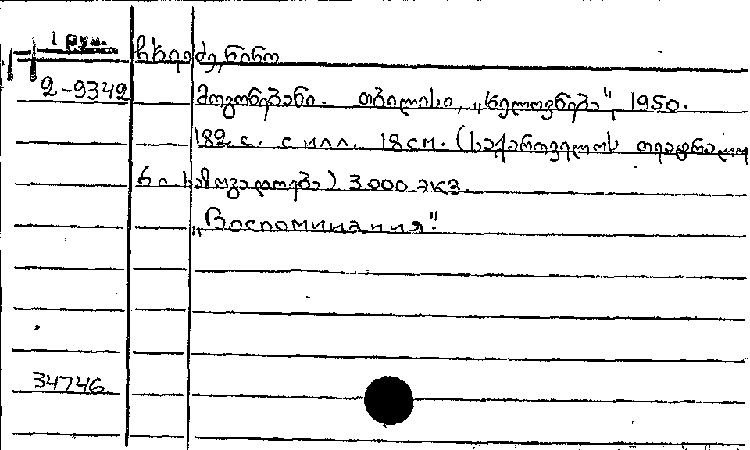 1 груз.
ჩხეიძე ნინო
2-9342
მოგონებანი. თბილისი, „ხელოვნება", 1950.
182 с. с илл. 18 см. (საქართველოს თეატრალუ
რი საზოგადოება) 3.000 экз.
„Воспоминания".
34746